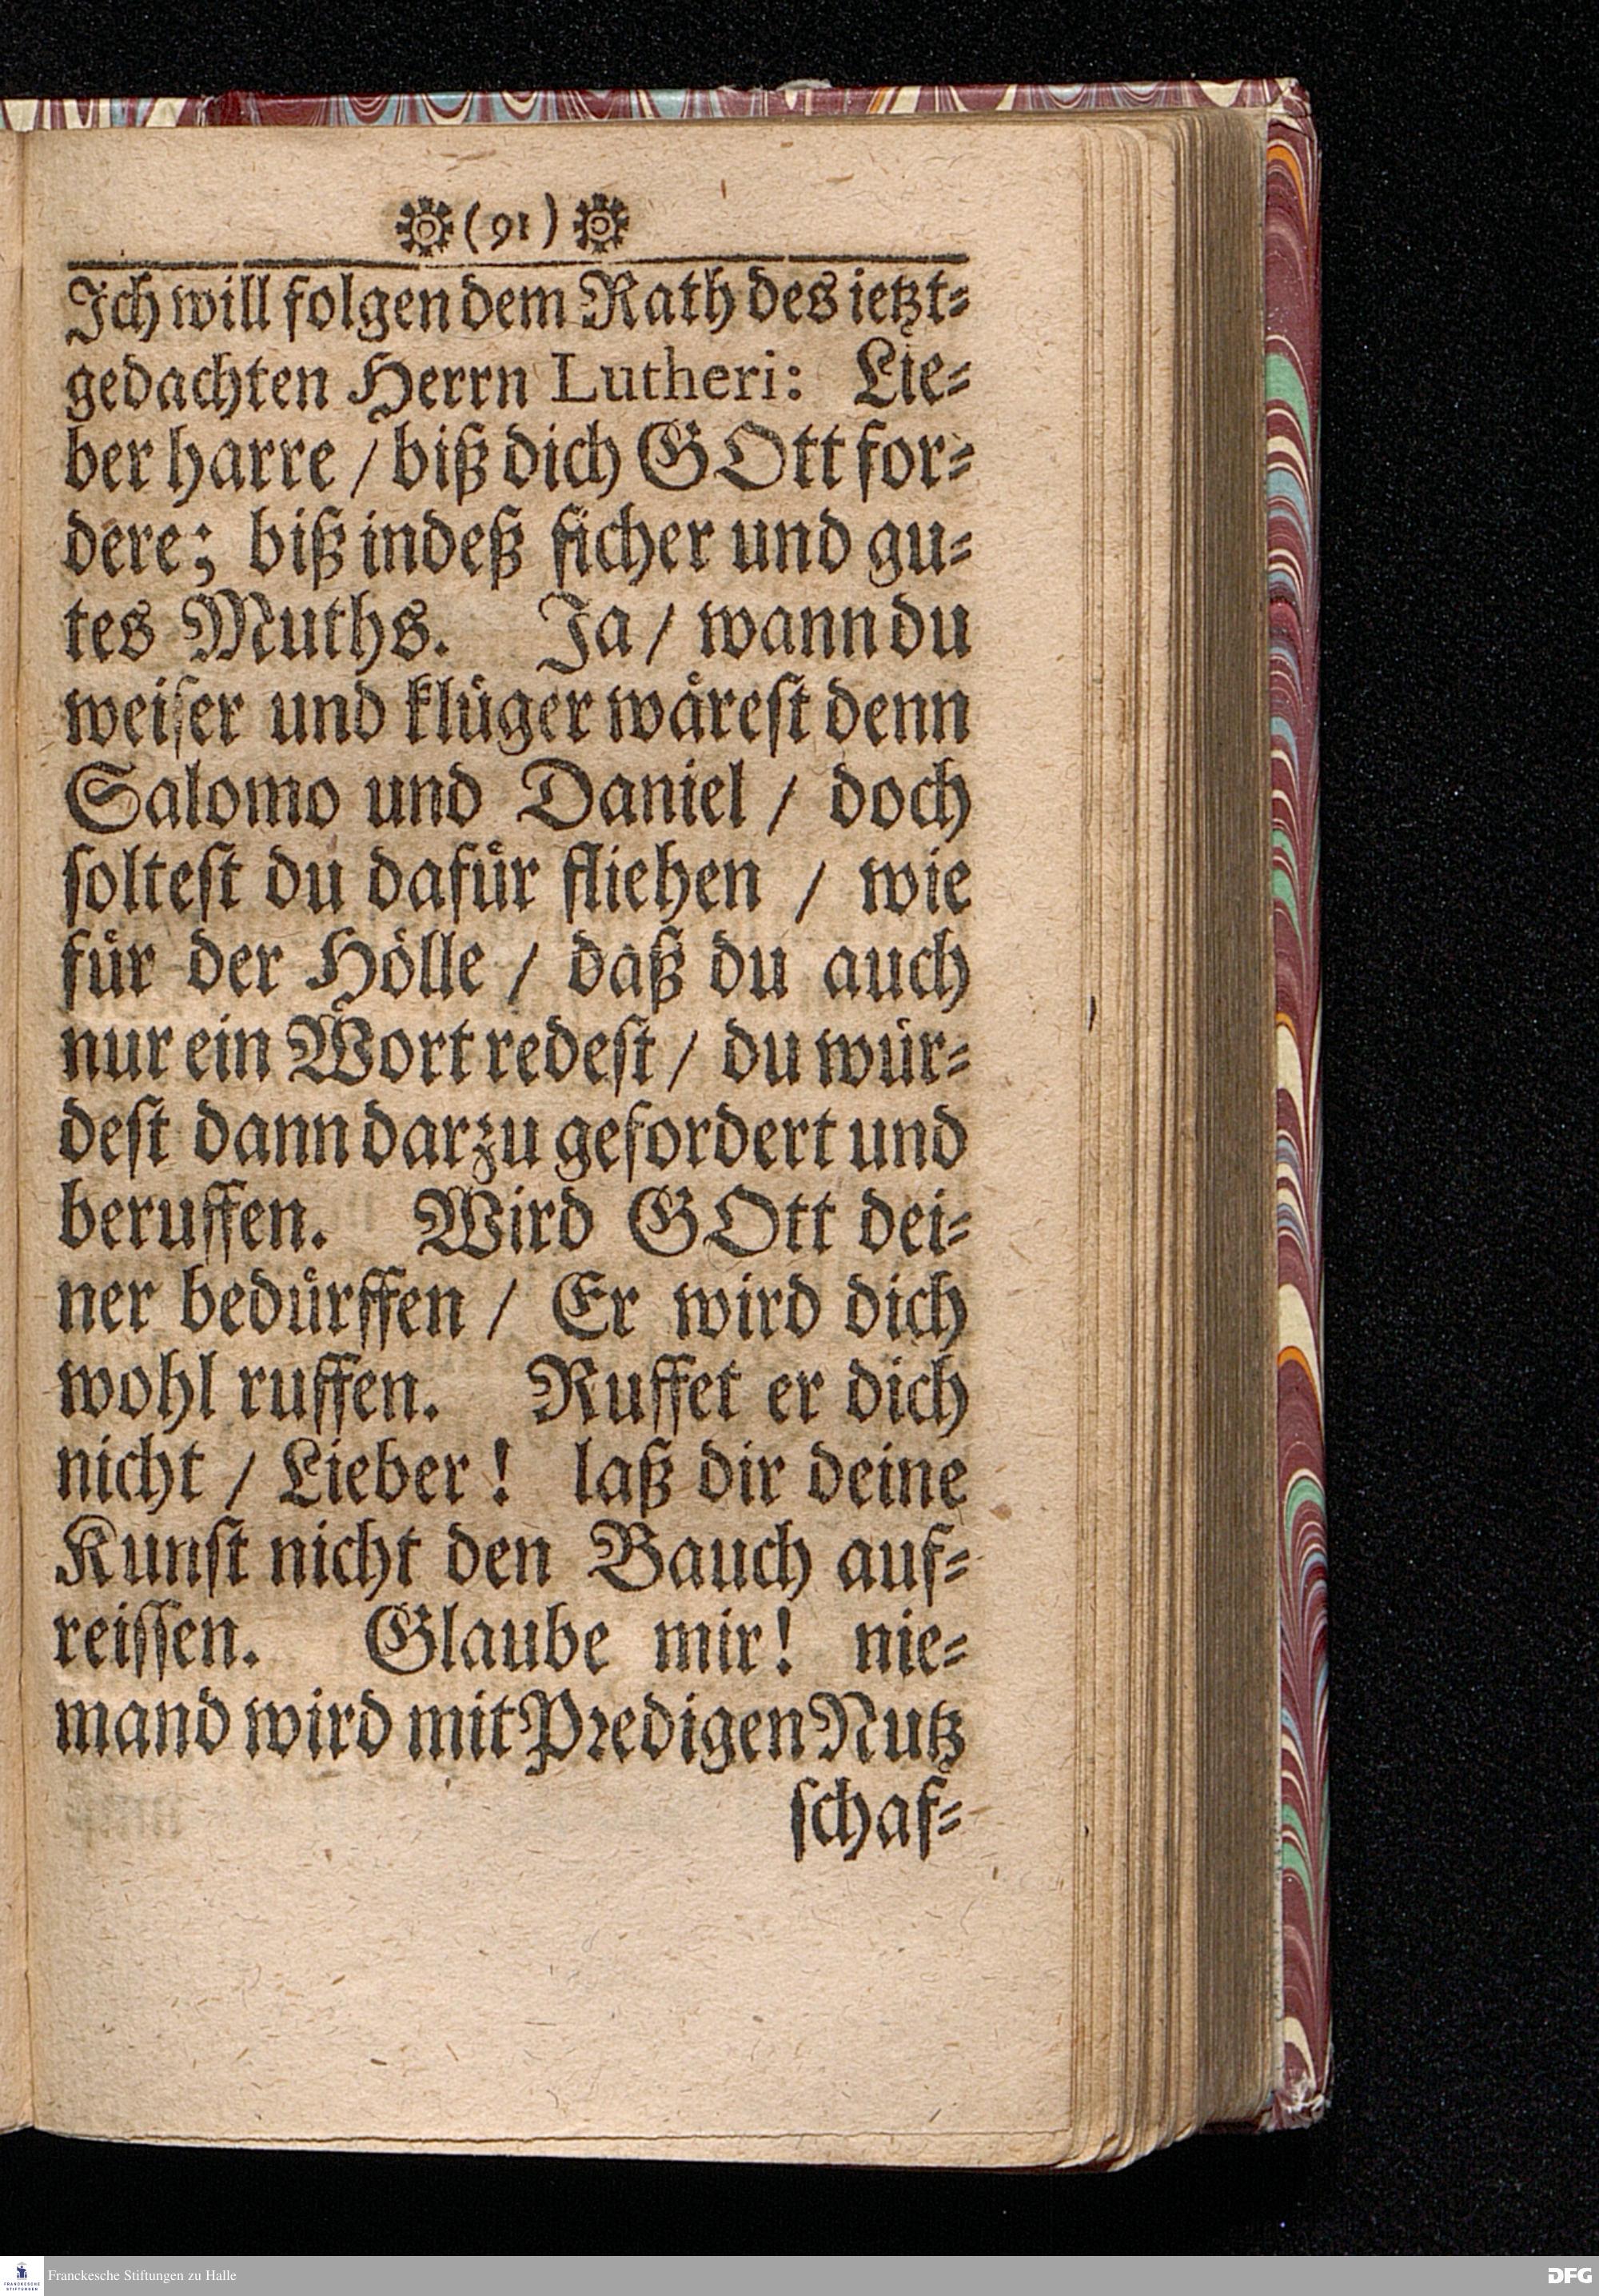 (91)
Ich will folgen dem Rath des ietzt⸗
gedachten Herrn Lutheri: Lie⸗
ber harre / biß dich GOtt for⸗
dere; biß indeß ſicher und gu⸗
tes Muths. Ja / wann du
weiſer und kluͤger waͤreſt denn
Salomo und Daniel / doch
ſolteſt du dafuͤr fliehen / wie
fuͤr der Hoͤlle / daß du auch
nur ein Wort redeſt / du wuͤr⸗
deſt dann darzu gefordert und
beruffen. Wird GOtt dei⸗
ner beduͤrffen / Er wird dich
wohl ruffen. Ruffet er dich
nicht / Lieber! laß dir deine
Kunſt nicht den Bauch auf⸗
reiſſen. Glaube mir! nie⸗
mand wird mit Predigen Nutz
ſchaf⸗
FRANCKESCHE STIFTUNGEN
Franckesche Stiftungen zu Halle
DFG